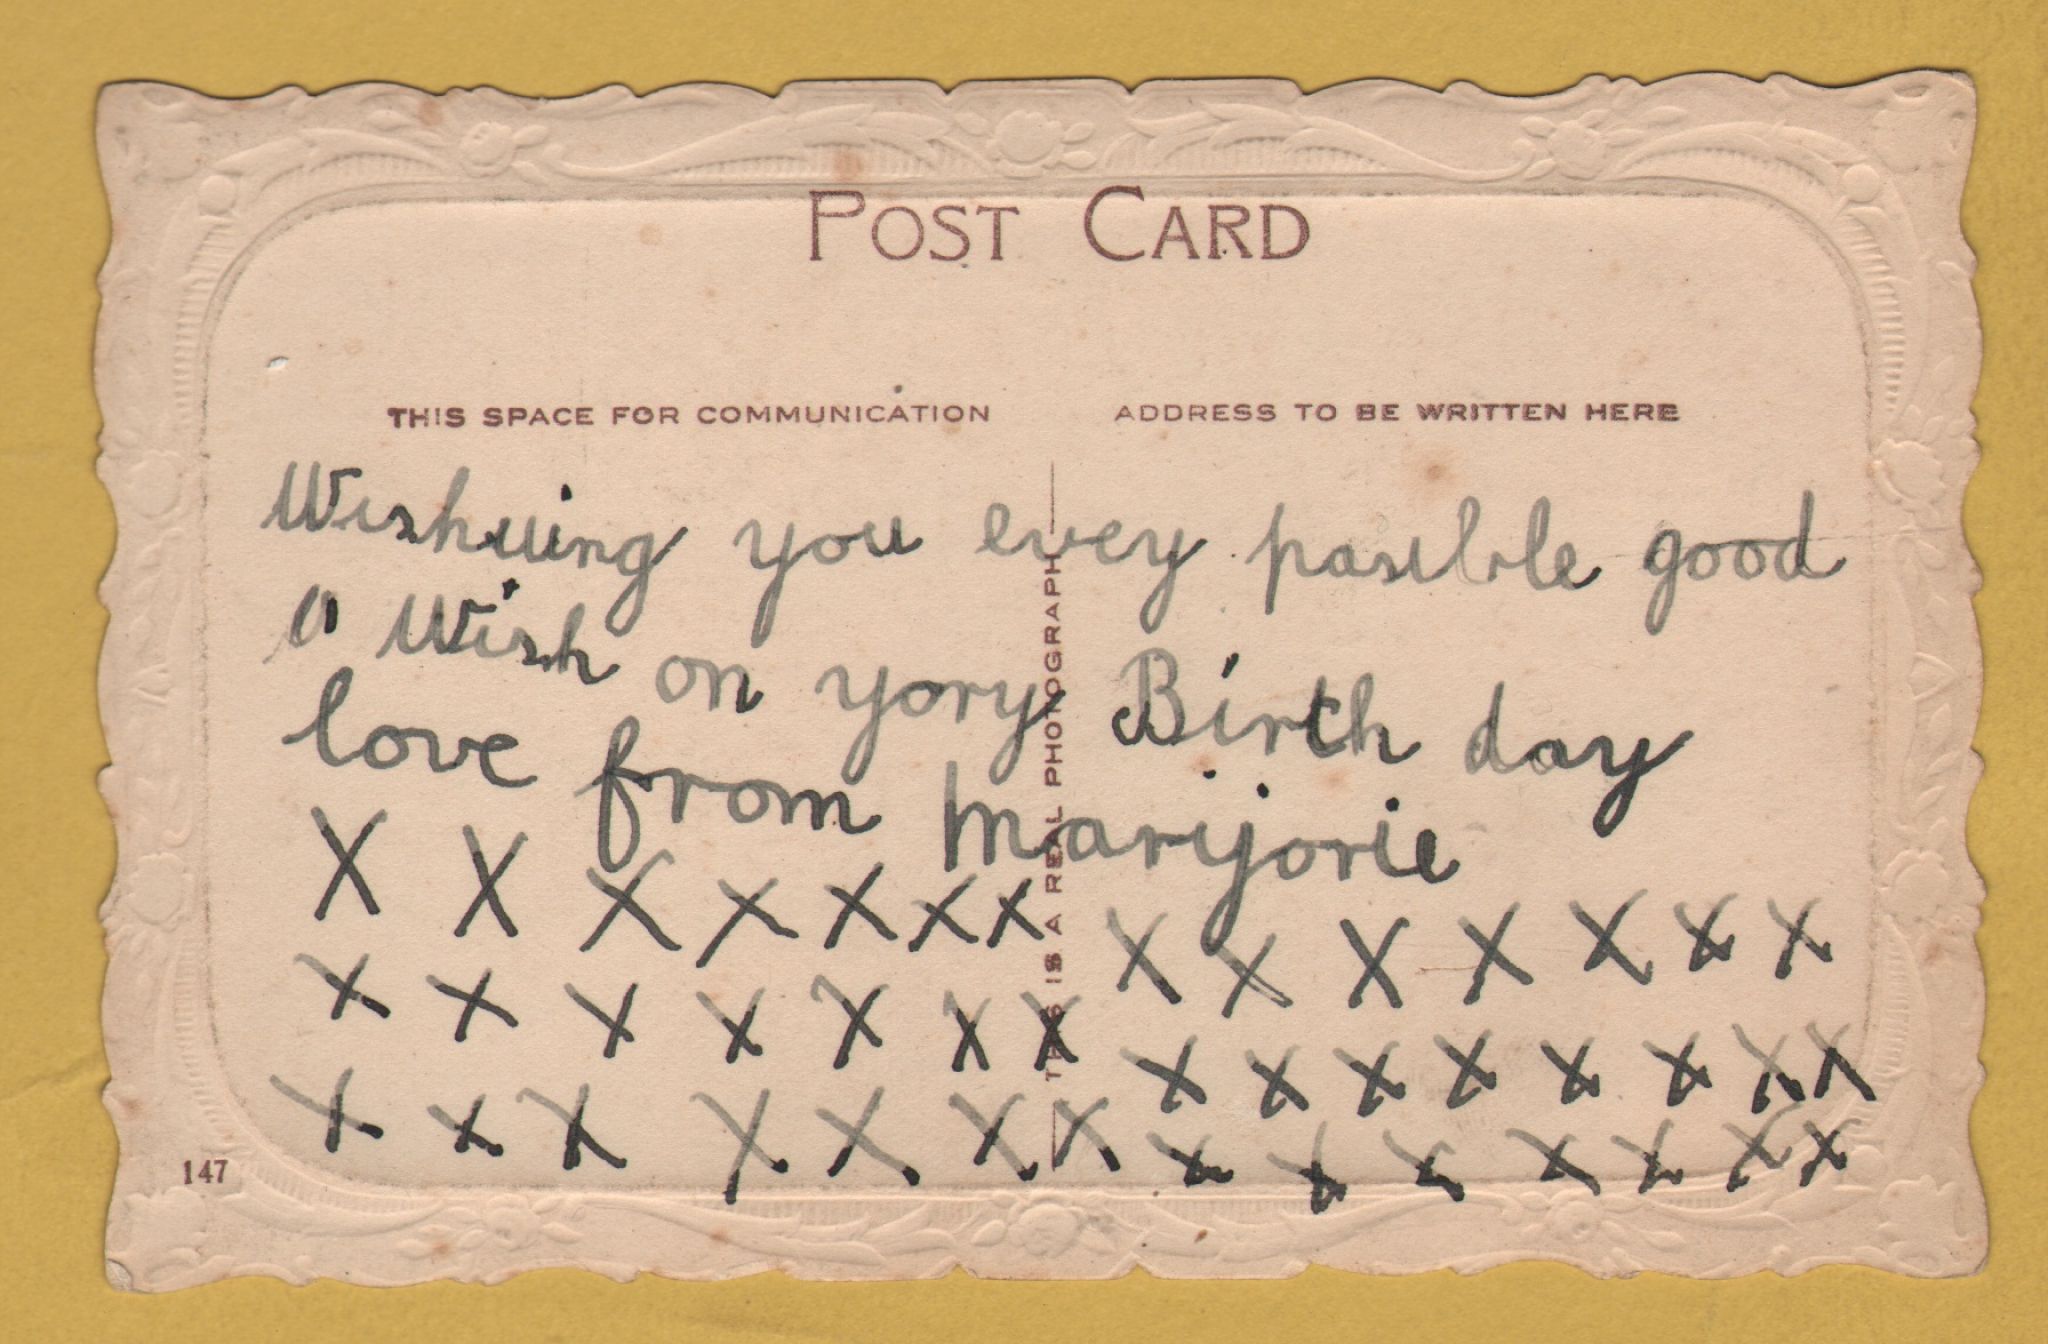 POST CARD
THIS SPACE FOR COMMUNICATION
ADDRESS TO BE WRITTEN HERE
Wishuing you evey pasible good
a Wish on yory Birth day
love from Marijorie
X X X X X X X X X X X X X X
X X X X X X X X X X X X X X X
X X X X X X X X X X X X X X
THIS IS A REAL PHOTOGRAPH
147